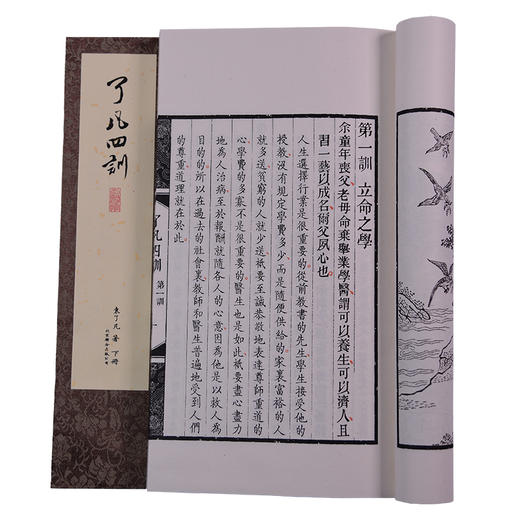 第一訓 立命之學
余童年喪父老母命棄舉業學醫謂可以養生可以濟人且
習一藝以成名爾父夙心也
人生選擇行業是很重要的從前教書的先生學生接受他的
授教沒有規定學費多少而是隨便供給的家裏富裕的
就多送貧窮的人就少送祇要至誠恭敬地表達尊師重道的
心學費的多寡不是很重要的醫生也是如此祇要盡心盡力
地為人治病至於報酬就隨各人的心意因為他是以救人為
目的的所以在過去的社會裏教師和醫生普遍地受到人們
的尊重道理就在於此
了凡四訓 第一訓 一
了凡四訓
袁了凡 著 下冊